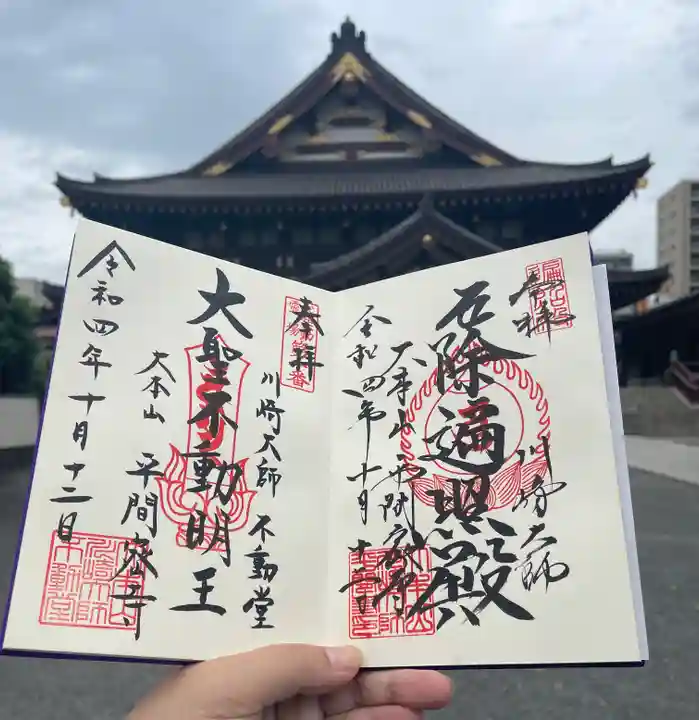 奉拝
川崎大師
厄除遍照殿
大本山平間密寺
令和四年十月十二日
奉拝
川崎大師 不動堂
大聖不動明王
大本山 平間密寺
令和四年十月十二日